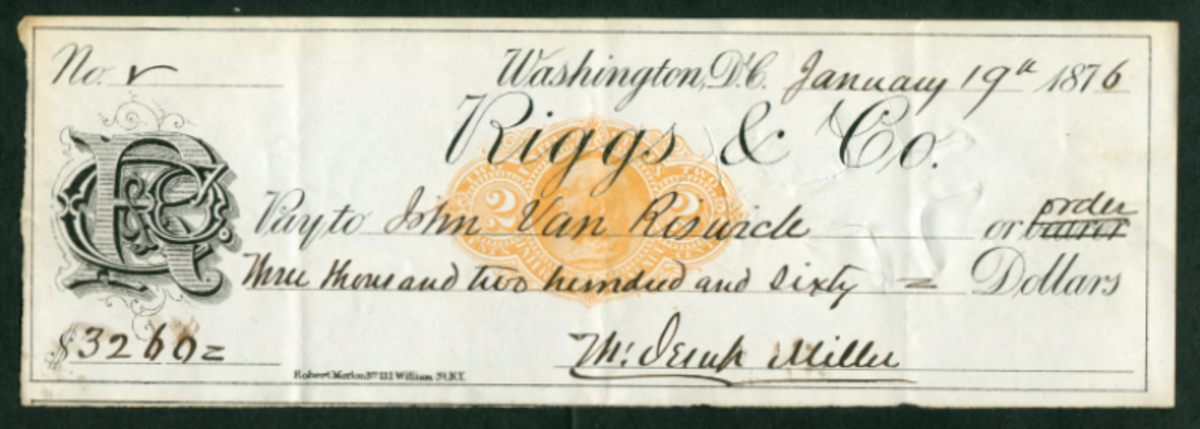 No.
Washington, D.C. January 19th 1876
Riggs & Co.
2 2
Pay to John Van Riswick or bearer order
Three thousand two hundred and sixty = Dollars
$3260=
Miller
Robert Morton No 111 William St. N.Y.